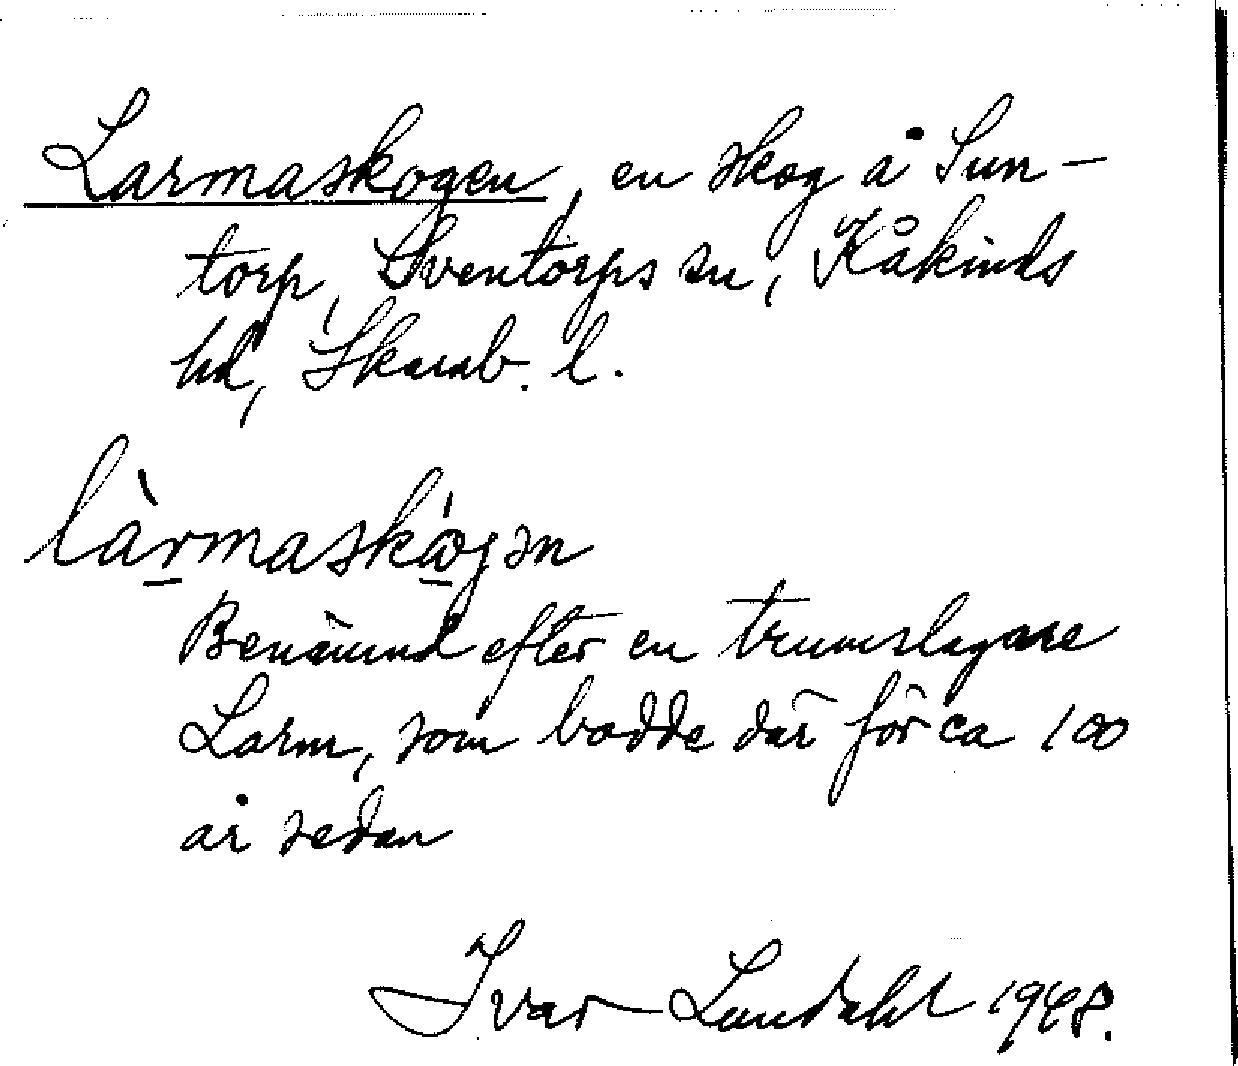 Larmaskogen, en skog å Sun-
torp, Sventorps sn, Kåkinds
hd, Skarab. l.
làrmaskógən
Benämnd efter en trumslagare
Larm, som bodde där för ca 100
år sedan
Ivar Lundahl 1948.